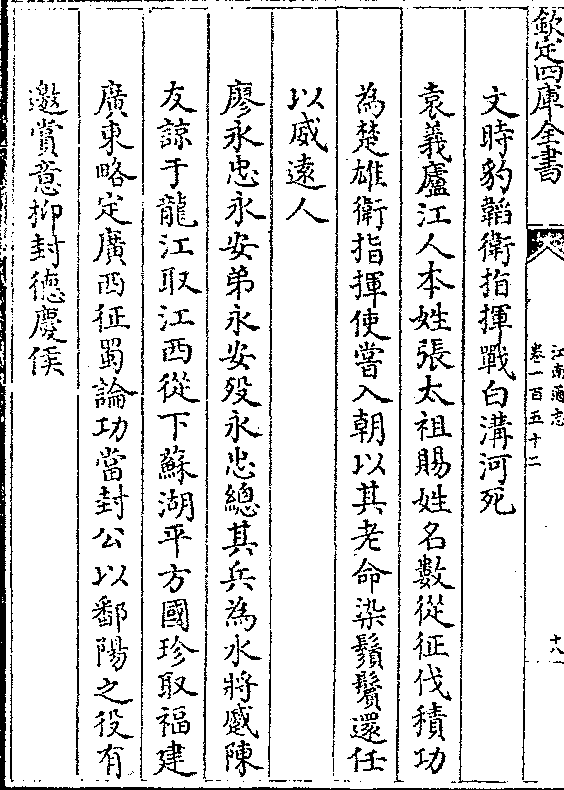 欽定四庫全書
江南通志
卷一百五十二
十八
文時豹韜衛指揮戰白溝河死
袁義廬江人本姓張太祖賜姓名數從征伐積功
為楚雄衛指揮使嘗入朝以其老命染鬚鬢還任
以威遠人
廖永忠永安弟永安歿永忠總其兵為水將蹙陳
友諒于龍江取江西從下蘇湖平方國珍取福建
廣東略定廣西征蜀論功當封公以鄱陽之役有
邀賞意抑封德慶侯